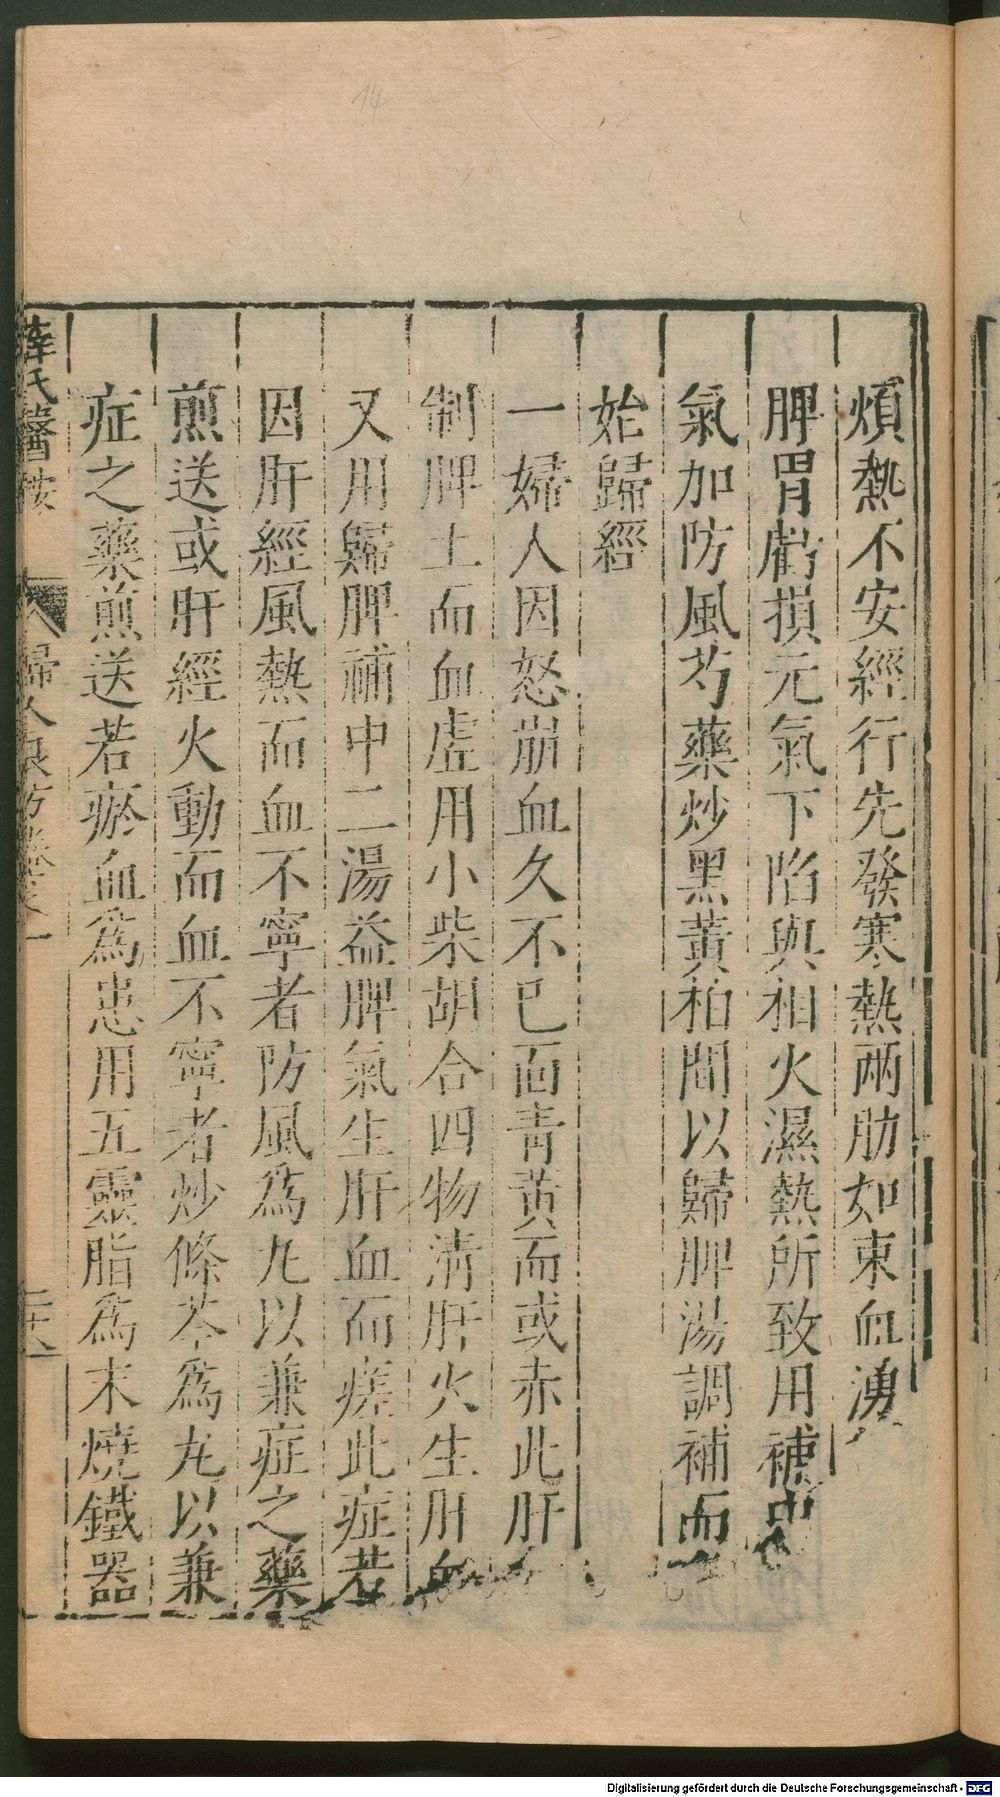 煩熱不安經行先發寒熱兩肋如束血湧
脾胃虧損元氣下陷與相火濕熱所致用補中
氣加防風芍藥炒黑黃柏間以歸脾湯調補而
始歸經
一婦人因怒崩血久不已面青黃而或赤此肝
制脾土而血虛用小柴胡合四物清肝火生肝血
又用歸脾補中二湯益脾氣生肝血而瘥此症若
因肝經風熱而血不寧者防風為丸以兼症之藥
煎送或肝經火動而血不寧者炒條芩為丸以兼
症之藥煎送若瘀血為患用五靈脂為末燒鐵器
薛氏醫按 婦人良方卷之一 二十八
14
Digitalisierung gefördert durch die Deutsche Forschungsgemeinschaft - DFG